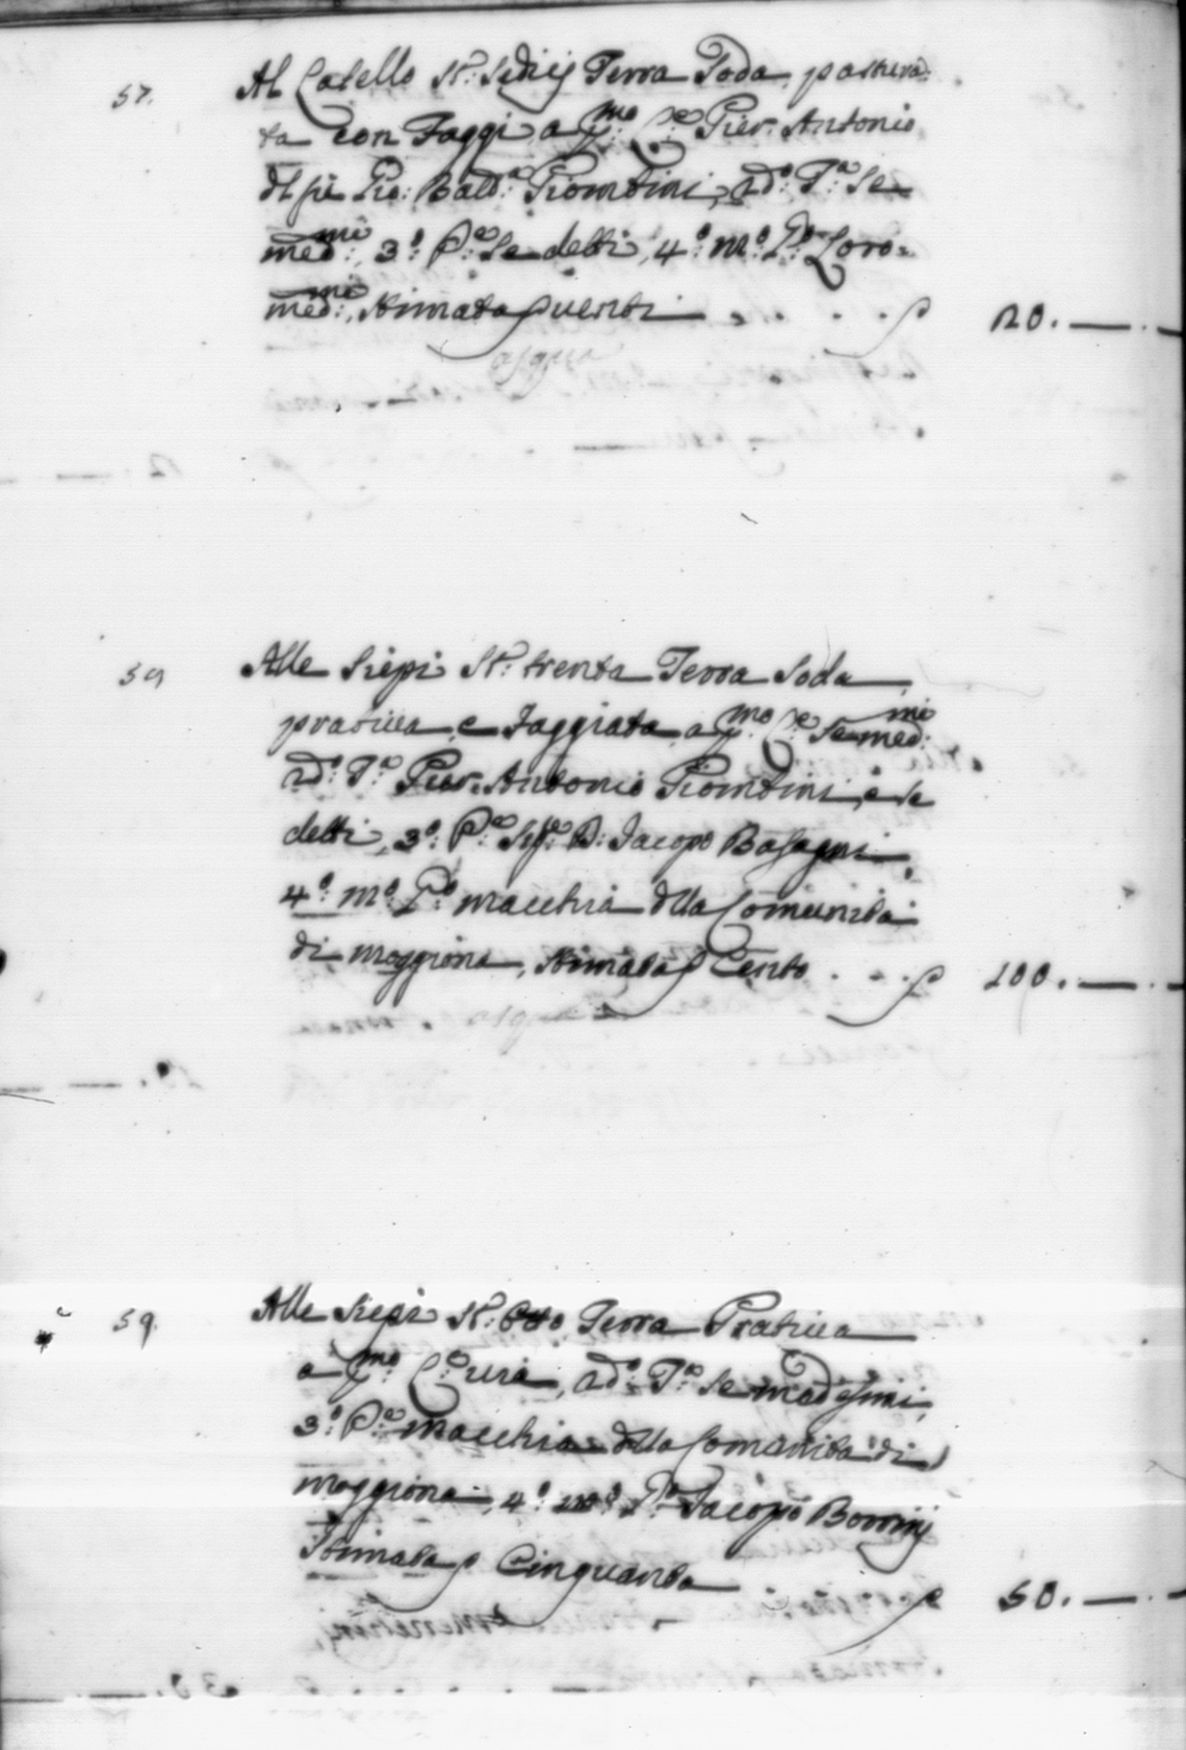 57. Al Catello St: Sedicj Terra Soda, pasturà=
ta con Faggi, a p:mo C:e Pier: Antonio
dl ſè Gio: Bald:a Giomdini, 2d:o T:a Se
med:mi, 3:o P:e Se detti, 4:o m:o P:o Loro=
med:mi, Stimata venti . . . . 20. —
59 Alle Siepi St: trenta Terra Soda
pratiua, e Faggiata, a p:mo C:e Se med:mi
2d:o T:a Pier: Antonio Giomdini, e Se
detti, 3:o P:e D: Jacopo Bassagni,
4:o m:o P:o macchia dlla Comunità
di moggiona, Stimata Cento . . . 100. —
59. Alle Siepi St: Otto Terra Pratiua
a p:mo C:e uia, 2d:o T:a Se medesimi,
3:o P:e macchia dlla Comunità di
moggiona, 4:o m:o P:o Jacopo Borrinj
Stimata Cinquanta . 50. —